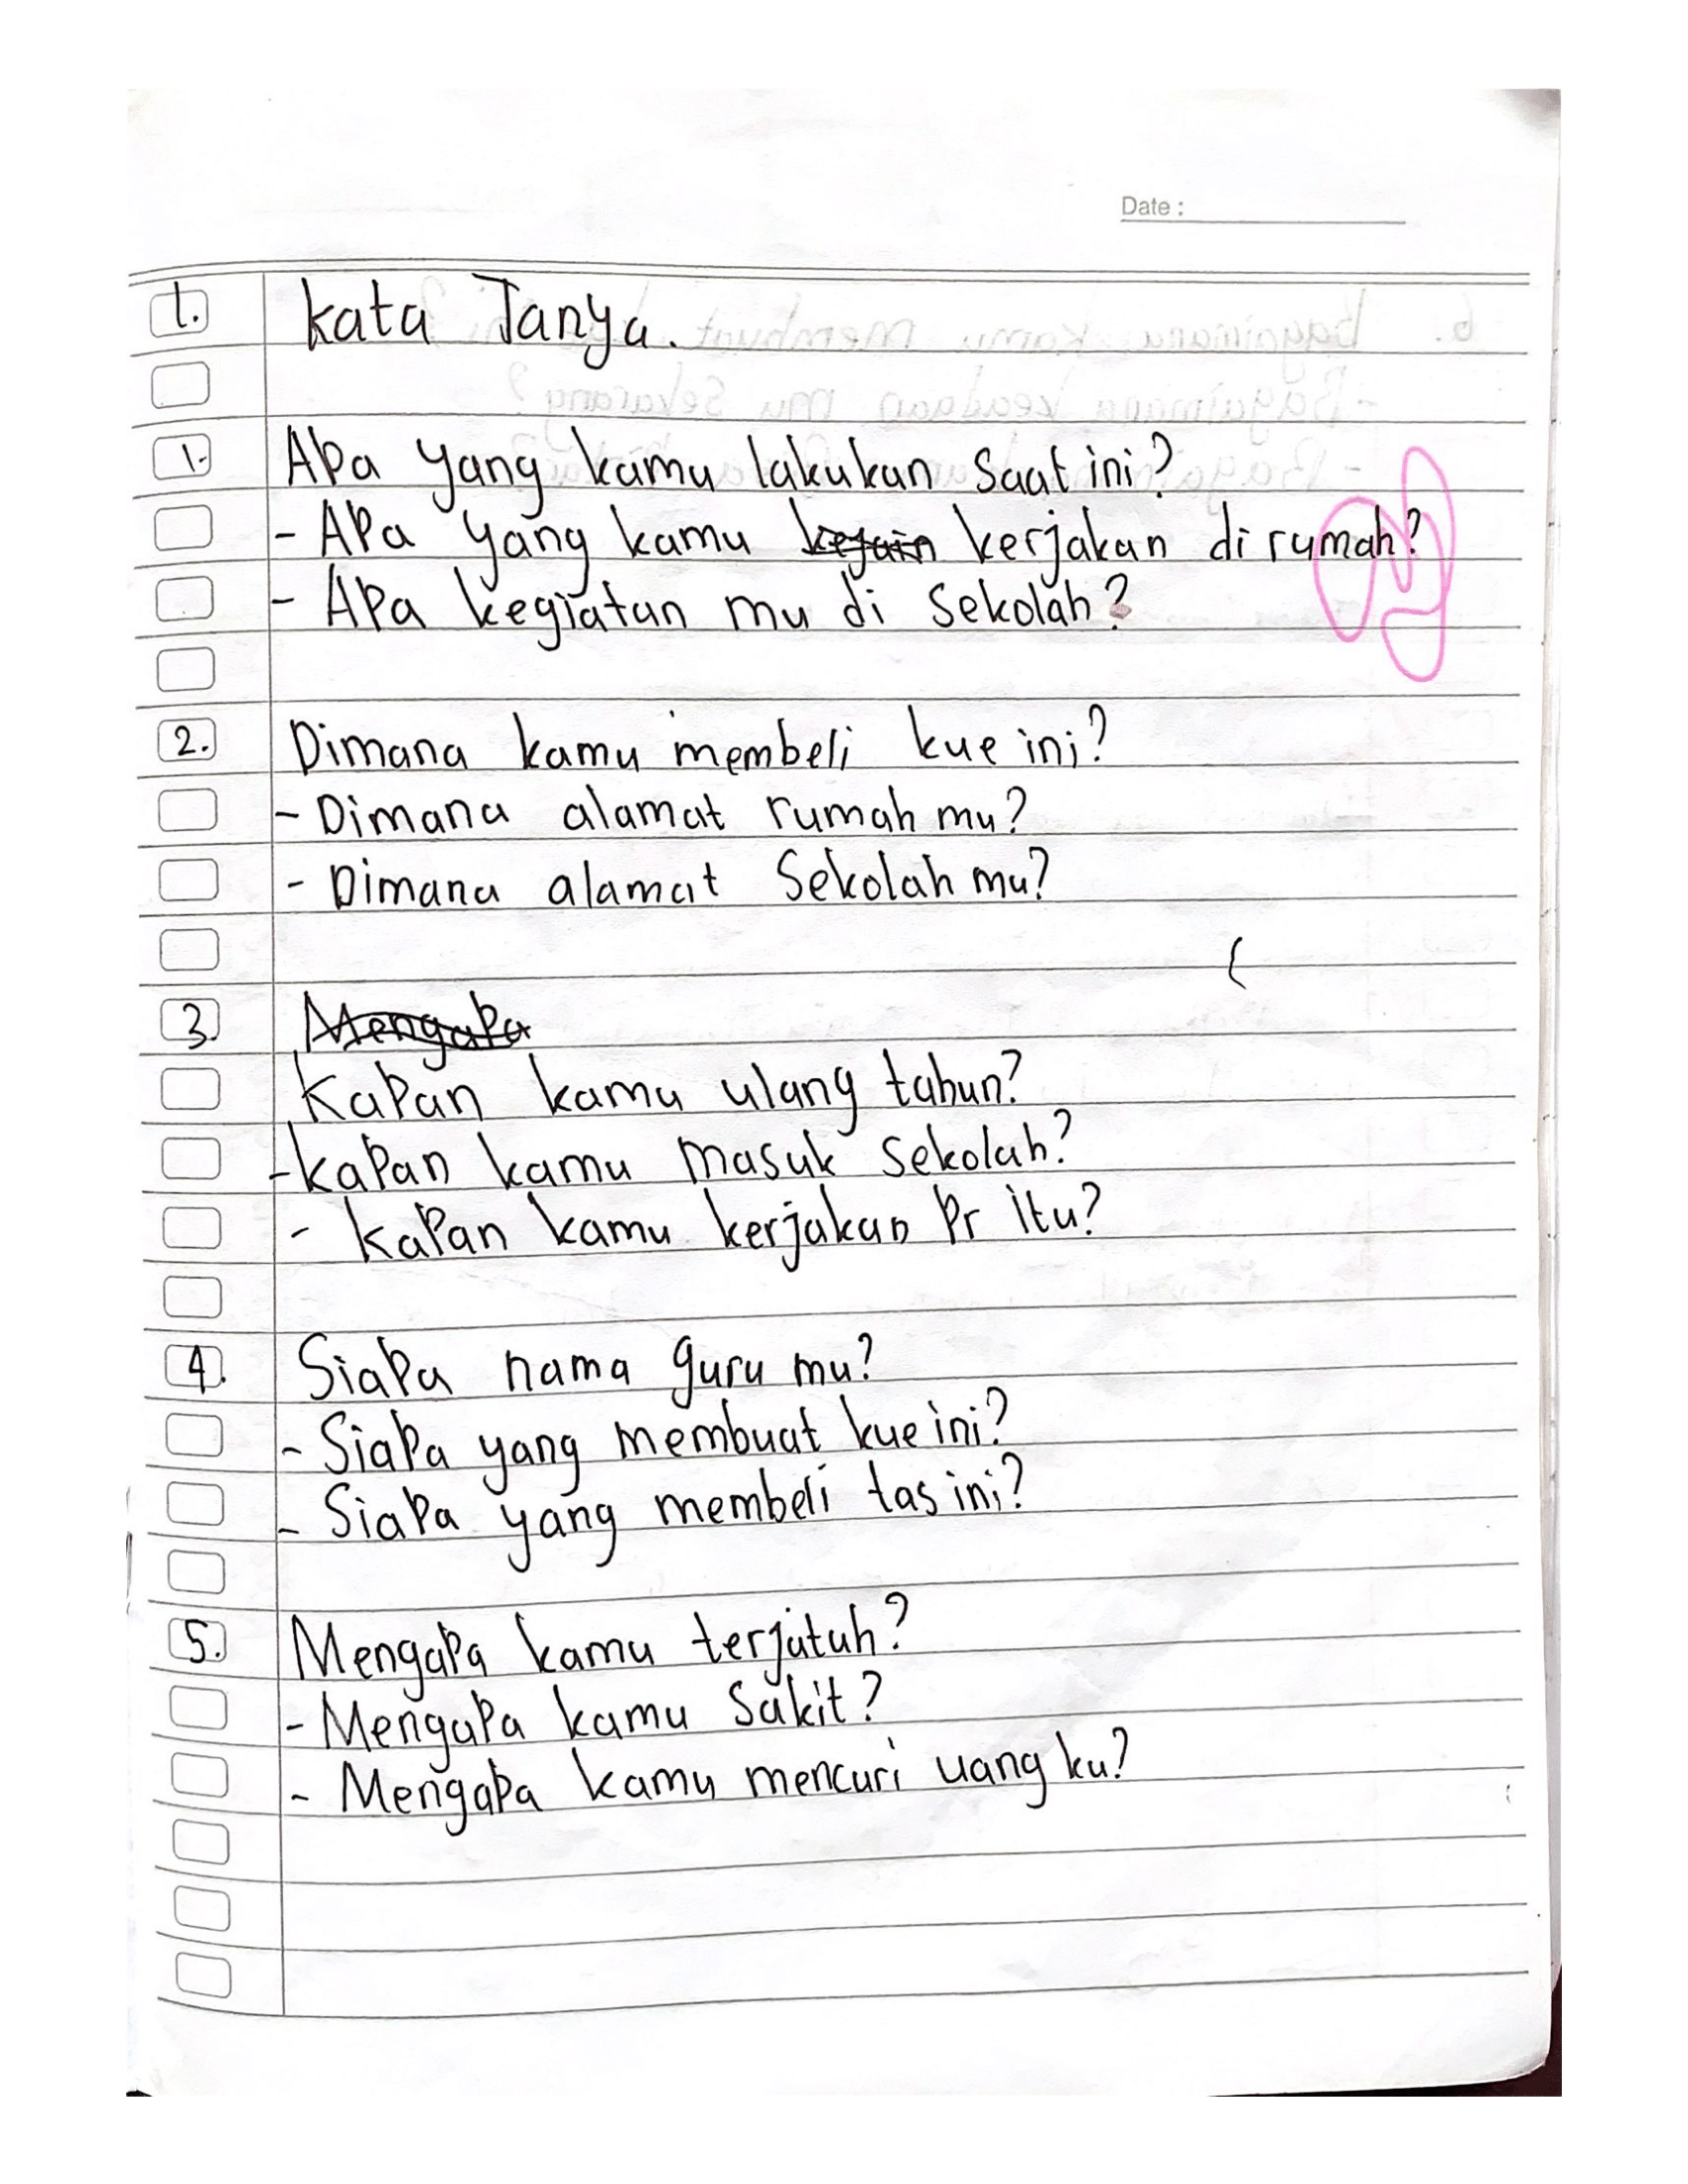 Date :
1. kata Tanya.
1. Apa yang kamu lakukan saat ini?
- Apa yang kamu kerjakan di rumah?
- Apa kegiatan mu di sekolah?
2. Dimana kamu membeli kue ini?
- Dimana alamat rumah mu?
- Dimana alamat sekolah mu?
3. Mengapa
Kapan kamu ulang tahun?
- kapan kamu masuk sekolah?
- kapan kamu kerjakan Pr itu?
4. Siapa nama guru mu?
- Siapa yang membuat kue ini?
- Siapa yang membeli tas ini?
5. Mengapa kamu terjatuh?
- Mengapa kamu sakit?
- Mengapa kamu mencuri uang ku?